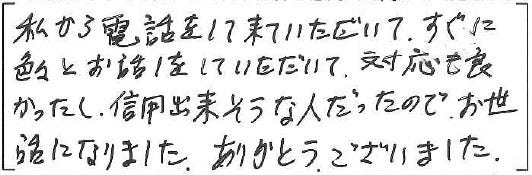 私から電話をして来ていただいて、すぐに
色々とお話しをしていただいて、対応も良
かったし、信用出来そうな人だったので、お世
話になりました。ありがとうございました。